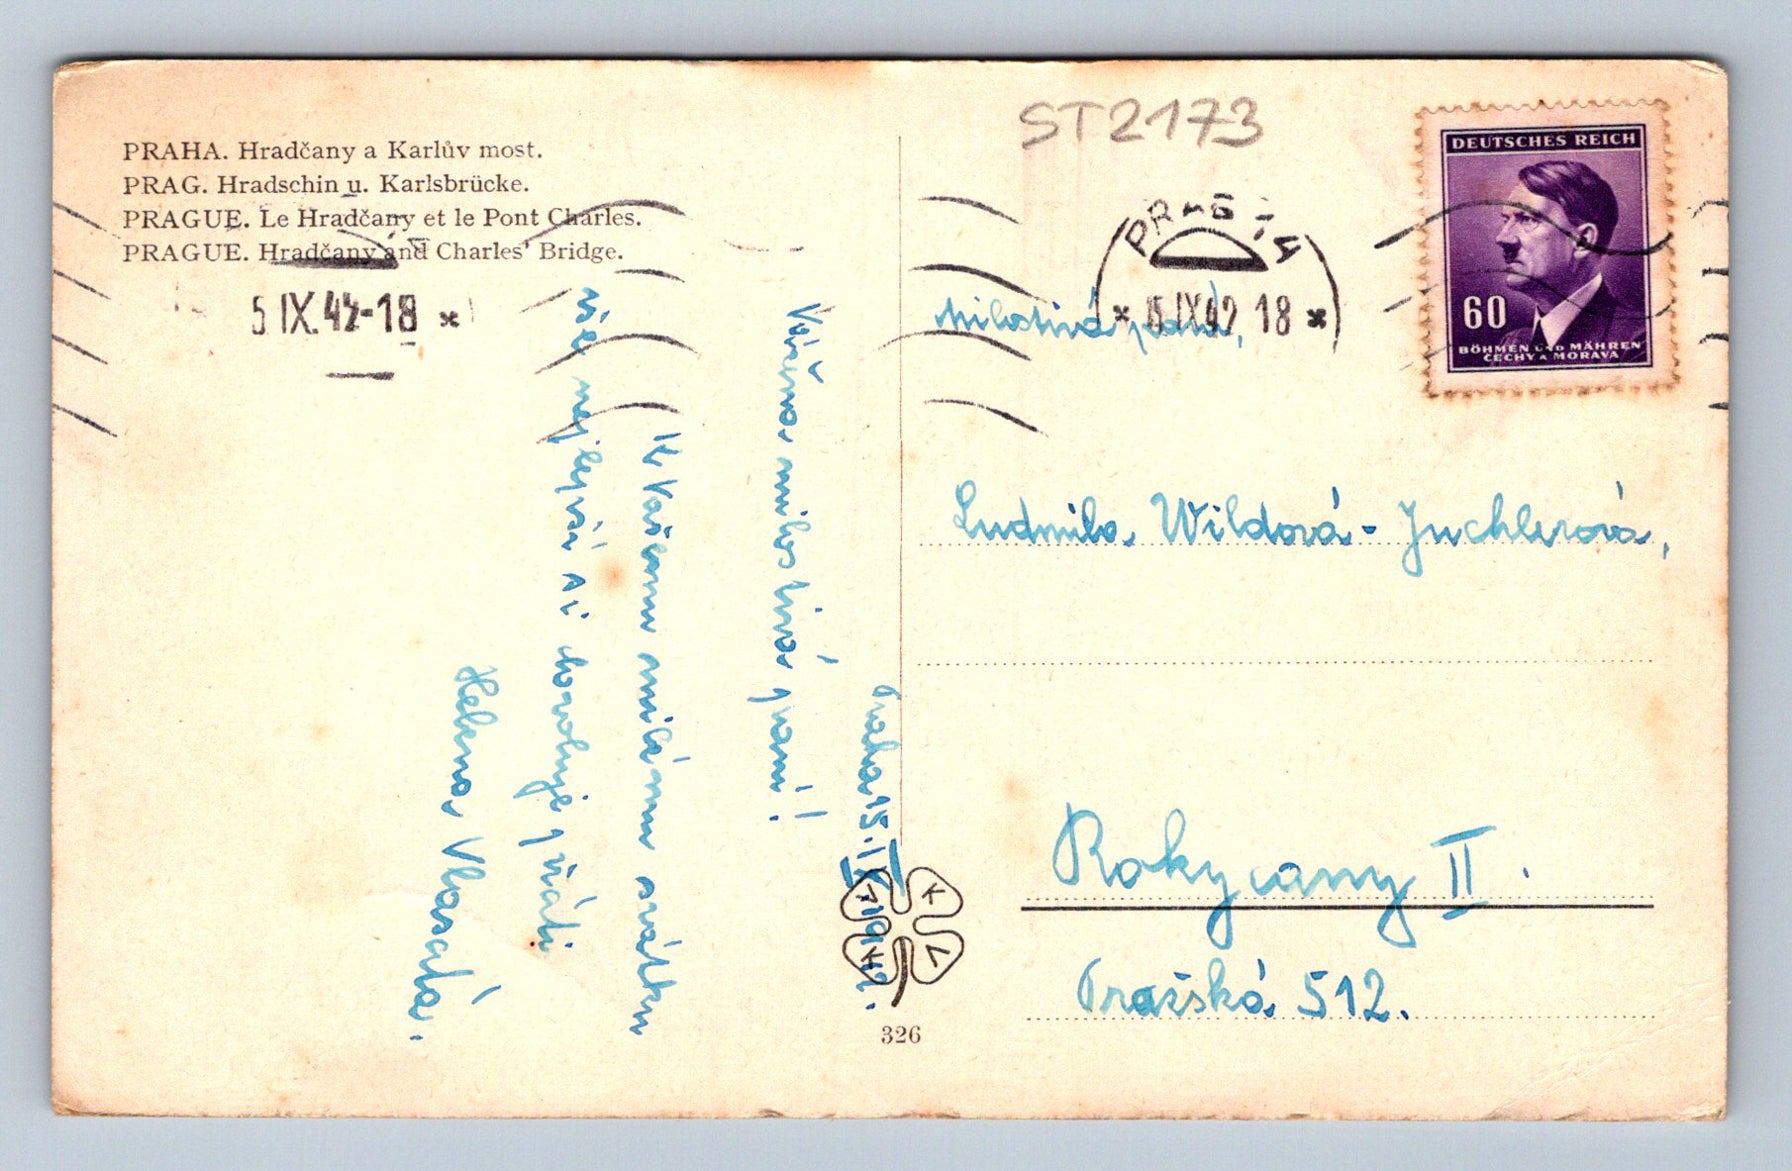 ST2173
PRAHA. Hradčany a Karlův most.
PRAG. Hradschin u. Karlsbrücke.
PRAGUE. Le Hradčany et le Pont Charles.
PRAGUE. Hradčany and Charles' Bridge.
5 IX. 42-18 *
DEUTSCHES REICH
60
BÖHMEN UND MÄHREN
ČECHY A MORAVA
* 5 IX 42 18 *
Praha 15.IX.1942.
Vážená milostivá paní!
K Vašemu milému svátku
vše nejlepší si dovoluje přáti
Helena Vlasatá.
Milostivá paní,
Ludmila Wildová-Juchlerová,
Rokycany II.
Pražská 512.
K V
326